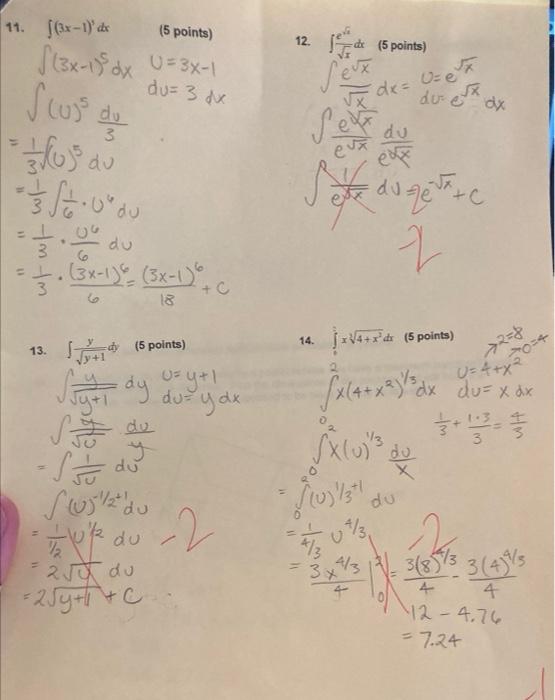 11. ∫(3x−1)⁵ dx (5 points)
∫(3x−1)⁵ dx U = 3x−1
du = 3 dx
∫(U)⁵ du/3
= 1/3 ∫(U)⁵ du
= 1/3 ∫ 1/6 · U⁶ du
= 1/3 · U⁶/6 du
= 1/3 · (3x−1)⁶/6 = (3x−1)⁶/18 + C
12. ∫ e^√x/√x dx (5 points)
∫ e^√x/√x dx = U = e^√x
du = e^√x dx
∫ e^√x/e^√x du/e^√x
∫ 1/e^√x du = e^-√x + C
-2
13. ∫ y/√(y+1) dy (5 points)
∫ y/√(y+1) dy U = y+1
du = y dx
∫ y/√U du/y
= ∫ 1/√U du
∫ (U)^(-1/2+1) du
= 1/(1/2) U^(1/2) du -2
= 2√U du
= 2√(y+1) + C
14. ∫ x ∛(4+x²) dx (5 points)
2=8
0=4
∫₀² x(4+x²)^(1/3) dx U = 4+x²
du = x dx
1/3 + 1·3/3 = 4/3
∫₀² x(U)^(1/3) du/x
= ∫₀² (U)^(1/3+1) du
= 1/(4/3) U^(4/3) -2
= 3x^(4/3)/4 |₀² = 3(8)^(4/3)/4 - 3(4)^(4/3)/4
12 - 4.76
= 7.24